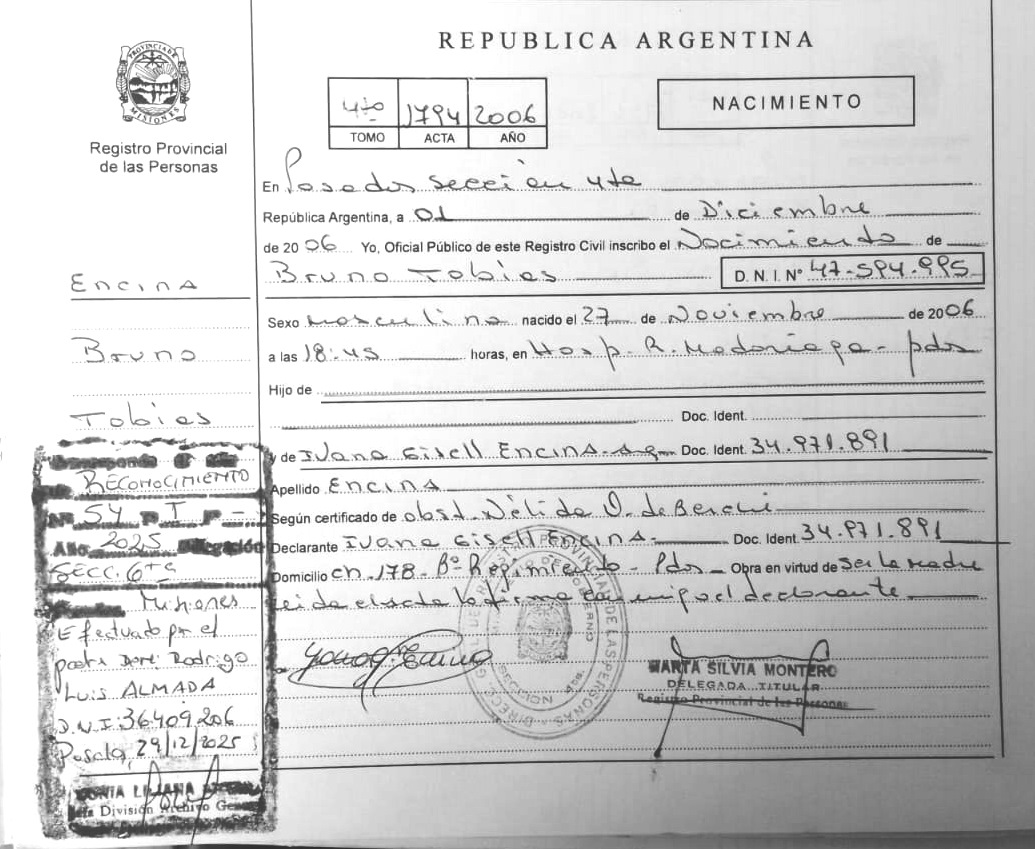 REPUBLICA ARGENTINA
PROVINCIA DE MISIONES
Registro Provincial
de las Personas
4to 1794 2006
TOMO ACTA AÑO
NACIMIENTO
En Posadas sección 4ta
República Argentina, a 01 de Diciembre
de 2006 Yo, Oficial Público de este Registro Civil inscribo el Nacimiento de
Bruno Tobias D.N.I. Nº 47.594.995
Sexo Masculino nacido el 27 de Noviembre de 2006
a las 18:45 horas, en Hosp. R. Madariaga - pds
Hijo de
Doc. Ident.
y de Ivana Gisell Encina - Arg Doc. Ident. 34.971.891
Apellido Encina
Según certificado de obst. Nélida de
Declarante Ivana Gisell Encina Doc. Ident. 34.971.891
Domicilio ch. 178 - Bº Regimiento - Pds Obra en virtud de ser la madre
Leida el acta la firma el declarante
MARTA SILVIA MONTERO
DELEGADA TITULAR
Registro Provincial de las Personas
Encina
Bruno
Tobias
RECONOCIMIENTO
Nº 54 T I F -
Año 2025 Delegación
SECC. 6ta
Misiones
Efectuado por el
padre Don: Rodrigo
Luis ALMADA
D.N.I: 36409206
29/12/2025
División Archivo